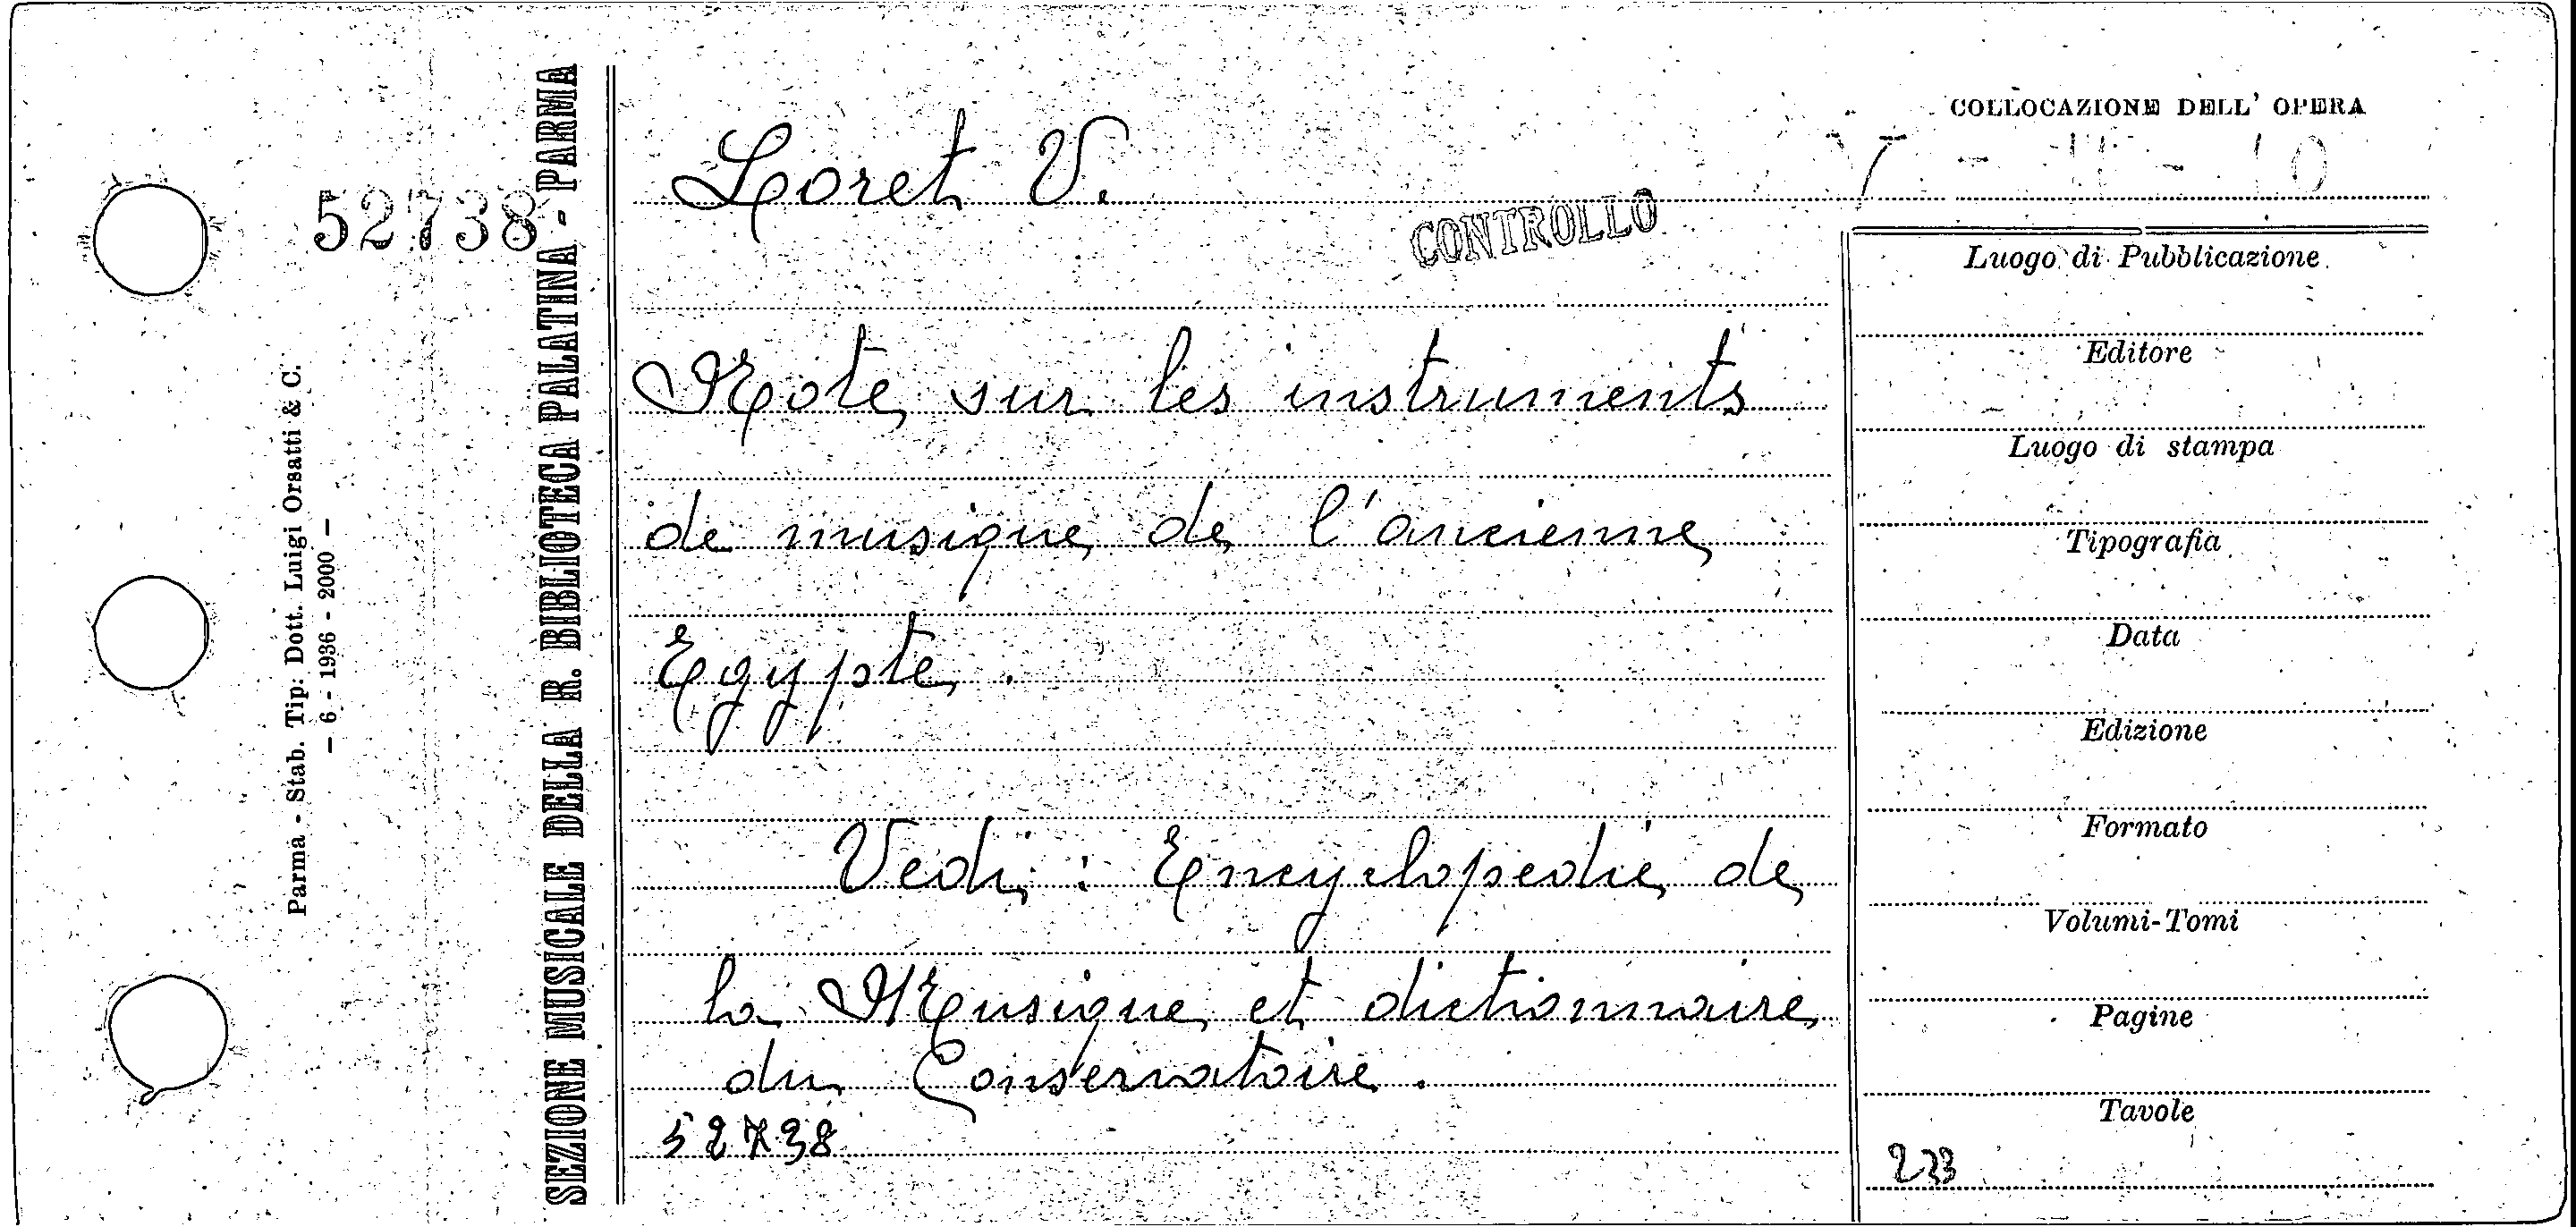 COLLOCAZIONE DELL' OPERA
52738
Loret V.
CONTROLLO
Note sur les instruments
de musique de l'ancienne
Egypte.
Vedi: Encyclopedie de
la Musique et dictionnaire
du Conservatoire.
52738
Luogo di Pubblicazione
Editore
Luogo di stampa
Tipografia
Data
Edizione
Formato
Volumi-Tomi
Pagine
Tavole
223
SEZIONE MUSICALE DELLA R. BIBLIOTECA PALATINA - PARMA
Parma - Stab. Tip. Dott. Luigi Orsatti & C.
- 6 - 1936 - 2000 -